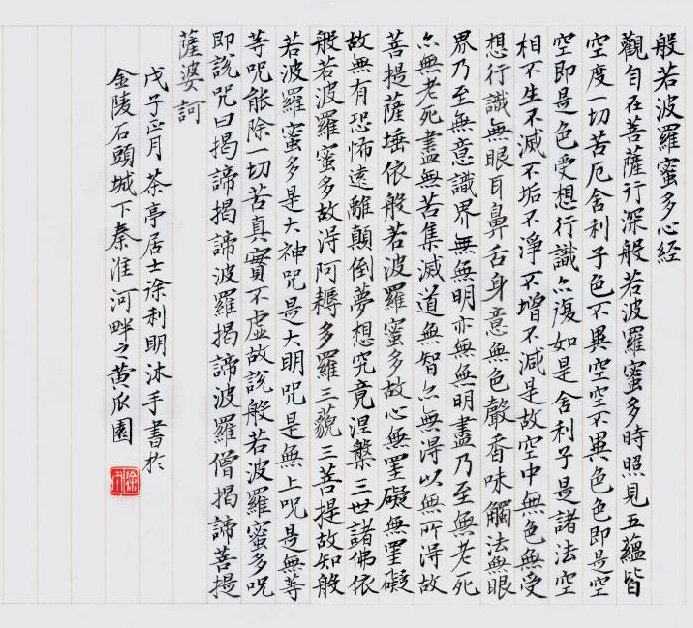 般若波羅蜜多心經
觀自在菩薩行深般若波羅蜜多時照見五蘊皆
空度一切苦厄舍利子色不異空空不異色色即是空
空即是色受想行識亦復如是舍利子是諸法空
相不生不滅不垢不淨不增不減是故空中無色無受
想行識無眼耳鼻舌身意無色聲香味觸法無眼
界乃至無意識界無無明亦無無明盡乃至無老死
亦無老死盡無苦集滅道無智亦無得以無所得故
菩提薩埵依般若波羅蜜多故心無罣礙無罣礙
故無有恐怖遠離顛倒夢想究竟涅槃三世諸佛依
般若波羅蜜多故得阿耨多羅三藐三菩提故知般
若波羅蜜多是大神咒是大明咒是無上咒是無等
等咒能除一切苦真實不虛故說般若波羅蜜多咒
即說咒曰揭諦揭諦波羅揭諦波羅僧揭諦菩提
薩婆訶
戊子正月茶亭居士徐利明沐手書於
金陵石頭城下秦淮河畔之黄瓜園